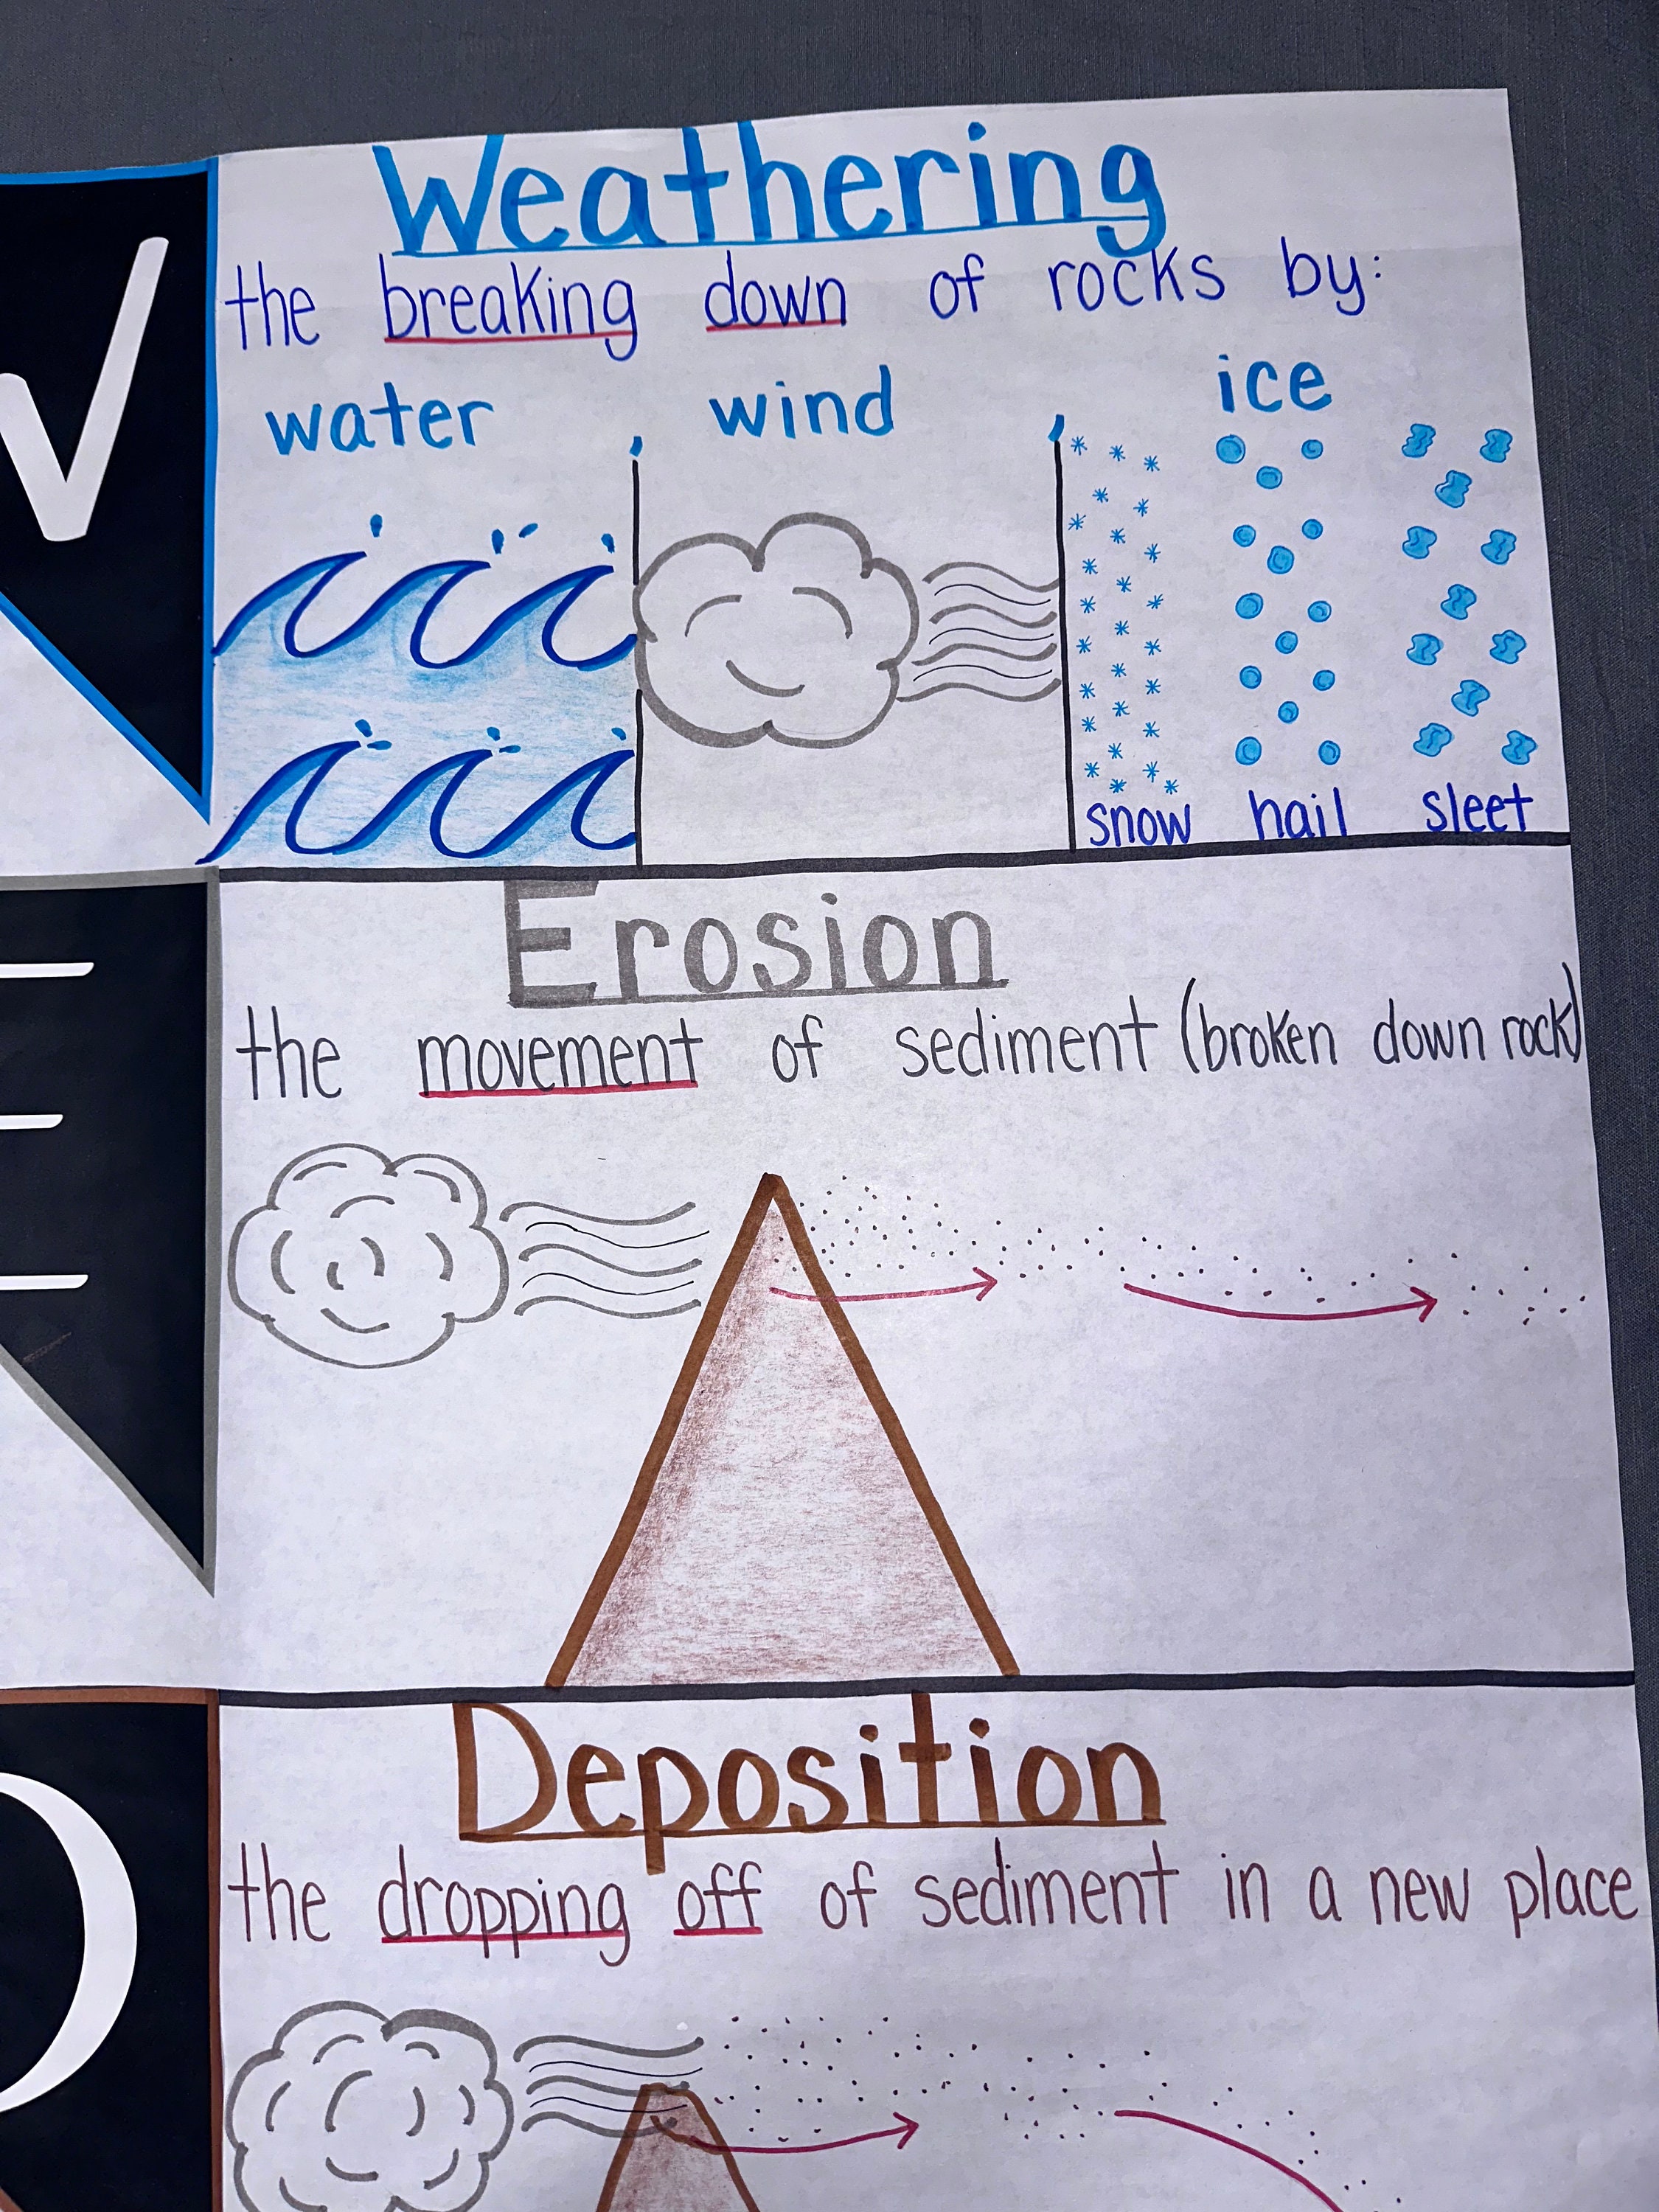 W
Weathering
the breaking down of rocks by:
water wind ice
snow hail sleet
E
Erosion
the movement of sediment (broken down rock)
D
Deposition
the dropping off of sediment in a new place